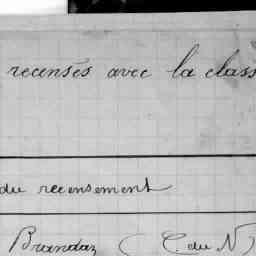 recensés avec la class
du recensement
Brandaz (C du N)